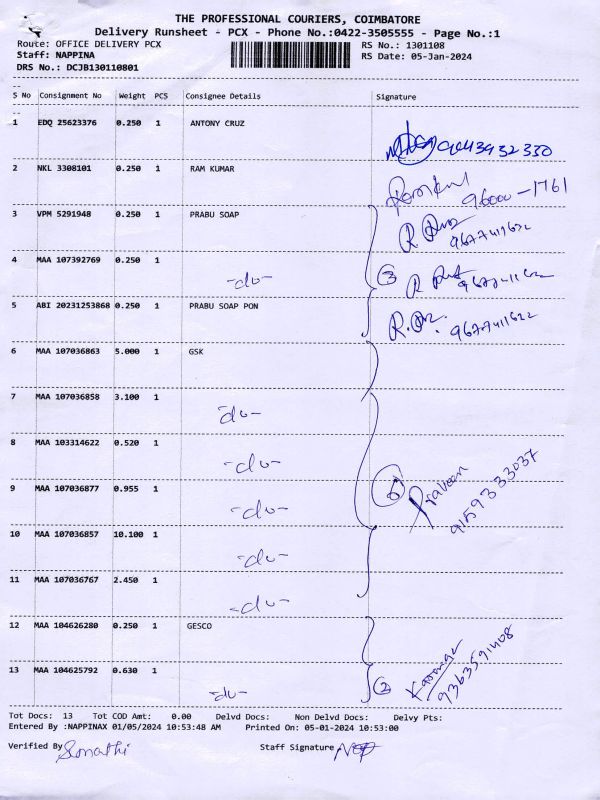 THE PROFESSIONAL COURIERS, COIMBATORE
Delivery Runsheet - PCX - Phone No.:0422-3505555 - Page No.:1
Route: OFFICE DELIVERY PCX RS No.: 1301108
Staff: NAPPINA RS Date: 05-Jan-2024
DRS No.: DCJB130110801
S No Consignment No Weight PCS Consignee Details Signature
1 EDQ 25623376 0.250 1 ANTONY CRUZ 9043932330
2 NKL 3308101 0.250 1 RAM KUMAR 96000-1761
3 VPM 5291948 0.250 1 PRABU SOAP
4 MAA 107392769 0.250 1 -do- 3
5 ABI 20231253868 0.250 1 PRABU SOAP PON 9677411622
6 MAA 107036863 5.000 1 GSK
7 MAA 107036858 3.100 1 -do-
8 MAA 103314622 0.520 1 -do-
9 MAA 107036877 0.955 1 -do- Praveen 9159333037
10 MAA 107036857 10.100 1 -do-
11 MAA 107036767 2.450 1 -do-
12 MAA 104626280 0.250 1 GESCO
13 MAA 104625792 0.630 1 -do- 2 9363591408
Tot Docs: 13 Tot COD Amt: 0.00 Delvd Docs: Non Delvd Docs: Delvy Pts:
Entered By :NAPPINAX 01/05/2024 10:53:48 AM Printed On: 05-01-2024 10:53:00
Verified By Staff Signature